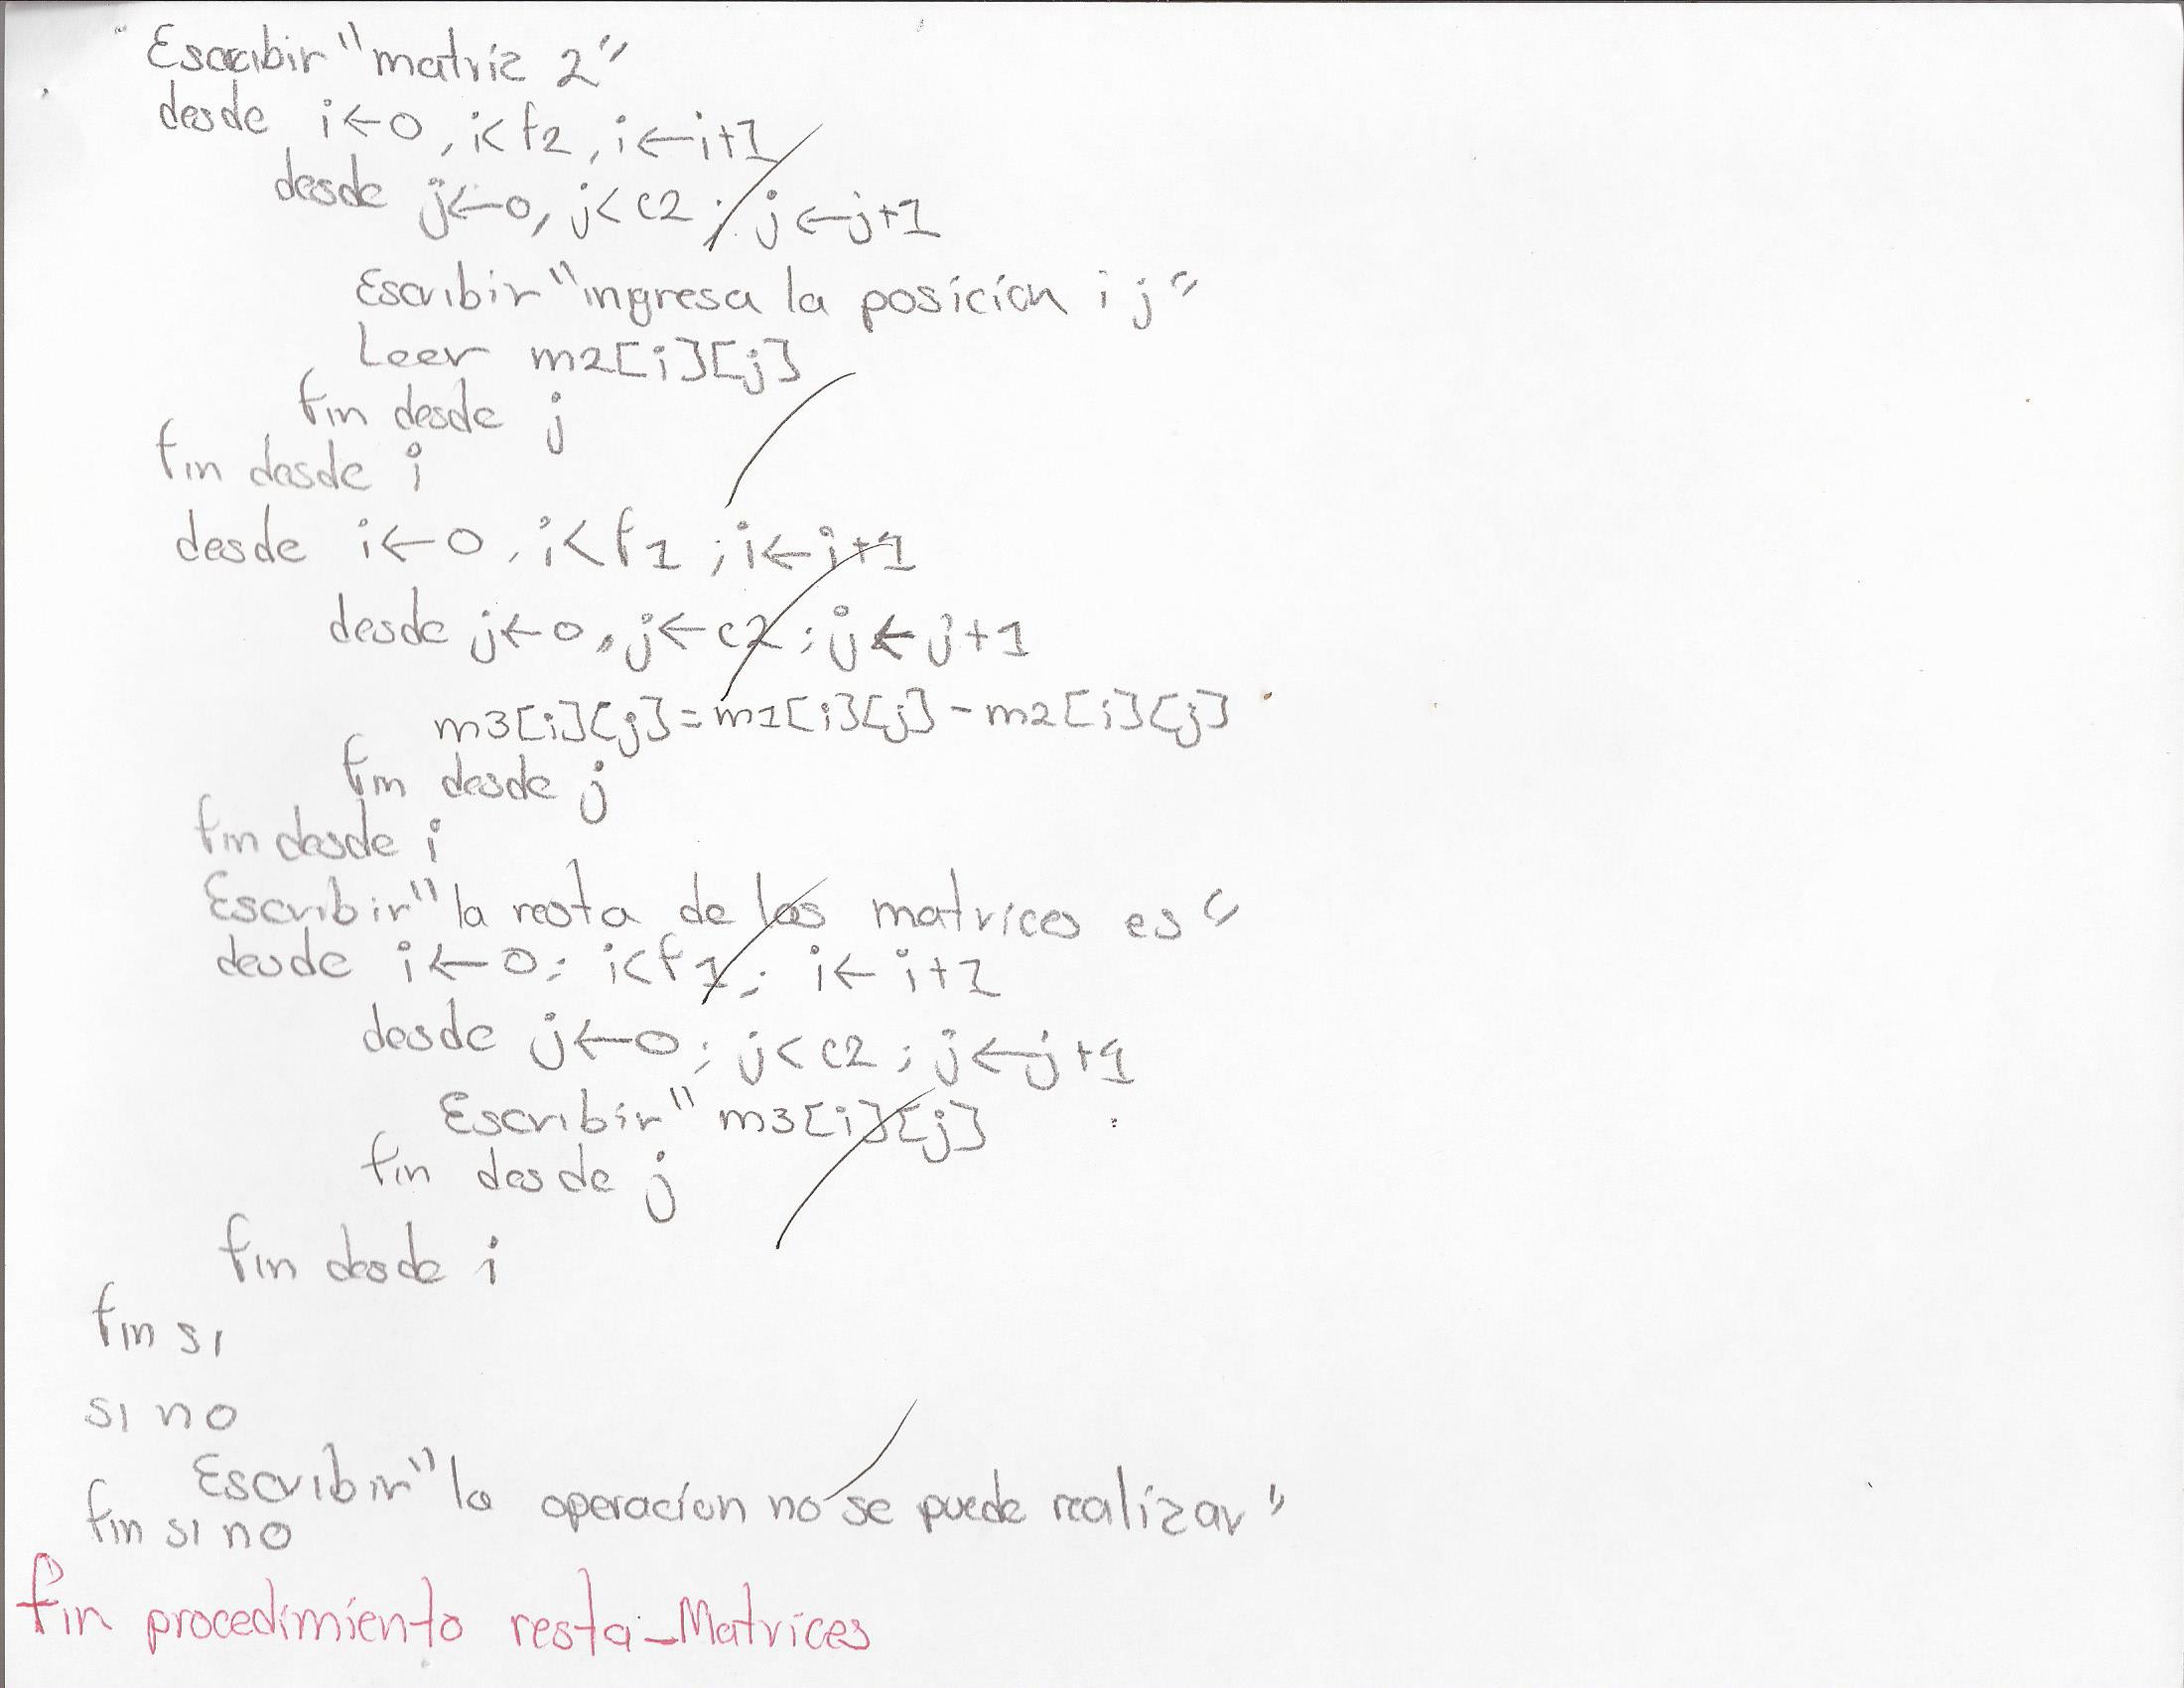 Escribir "matriz 2"
desde i←0, i<f2, i←i+1
desde j←0, j<c2; j←j+1
Escribir "ingresa la posición i j"
Leer m2[i][j]
fin desde j
fin desde i
desde i←0, i<f1; i←i+1
desde j←0, j←c2; j←j+1
m3[i][j]=m1[i][j]-m2[i][j]
fin desde j
fin desde i
Escribir "la resta de las matrices es"
desde i←0; i<f1; i←i+1
desde j←0; j<c2; j←j+1
Escribir" m3[i][j]
fin desde j
fin desde i
fin si
si no
Escribir "la operación no se puede realizar"
fin si no
fin procedimiento resta_Matrices